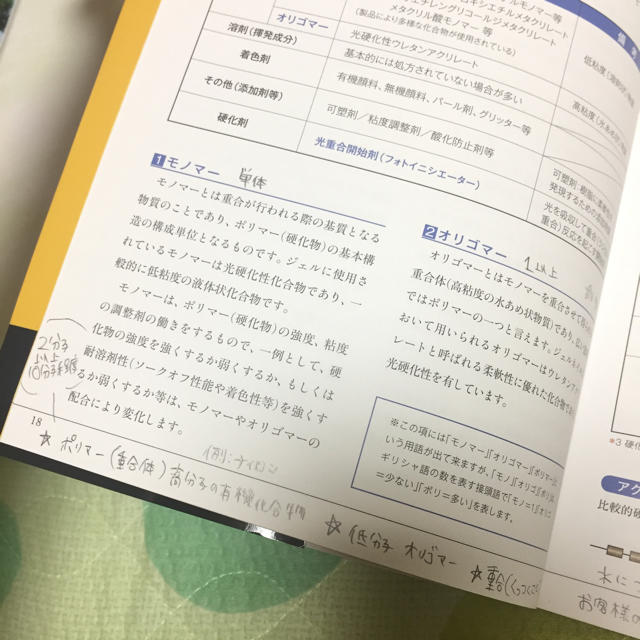 エチレングリコールジメタクリレート
メタクリル酸モノマー 等
(製品により多種な化合物が使用されている)
オリゴマー
光硬化性ウレタンアクリレート
溶剤(揮発成分)
基本的には処方されていない場合が多い
着色剤
有機顔料、無機顔料、パール剤、グリッター等
その他(添加剤等)
可塑剤/粘度調整剤/酸化防止剤等
硬化剤
光重合開始剤(フォトイニシエーター)
1 モノマー 単体
モノマーとは重合が行われる際の基質となる
物質のことであり、ポリマー(硬化物)の基本構
造の構成単位となるものです。ジェルに使用さ
れているモノマーは光硬化性化合物であり、一
般的に低粘度の液体状化合物です。
モノマーは、ポリマー(硬化物)の強度、粘度
の調整剤の働きをするもので、一例として、硬
化物の強度を強くするか弱くするか、もしくは
耐溶剤性(ソークオフ性能や着色性等)を強くす
るか弱くするか等は、モノマーやオリゴマーの
配合により変化します。
2分子
以上
18
☆ ポリマー(重合体)高分子の有機化合物
例:ナイロン
2 オリゴマー 1以上
オリゴマーとはモノマーを重合させて
重合体(高粘度の水あめ状物質)であり、広い
ではポリマーの一つと言えます。ジェルネイル
おいて用いられるオリゴマーはウレタンアク
レートと呼ばれる柔軟性に優れた化合物で
光硬化性を有しています。
※この項には「モノマー」「オリゴマー」「ポリマー」
いう用語が出て来ますが、「モノ」「オリゴ」「ポリ」
ギリシャ語の数を表す接頭語で「モノ=1」「オリゴ
=少ない」「ポリ=多い」を表します。
☆ 低分子 オリゴマー
☆ 重合(くっつく
低粘度
高粘度
可塑剤:樹脂に柔軟性
発現するための
光を吸収して重合
重合)反応を起こす
※3 硬化
アク
比較的硬
水に
お客様の